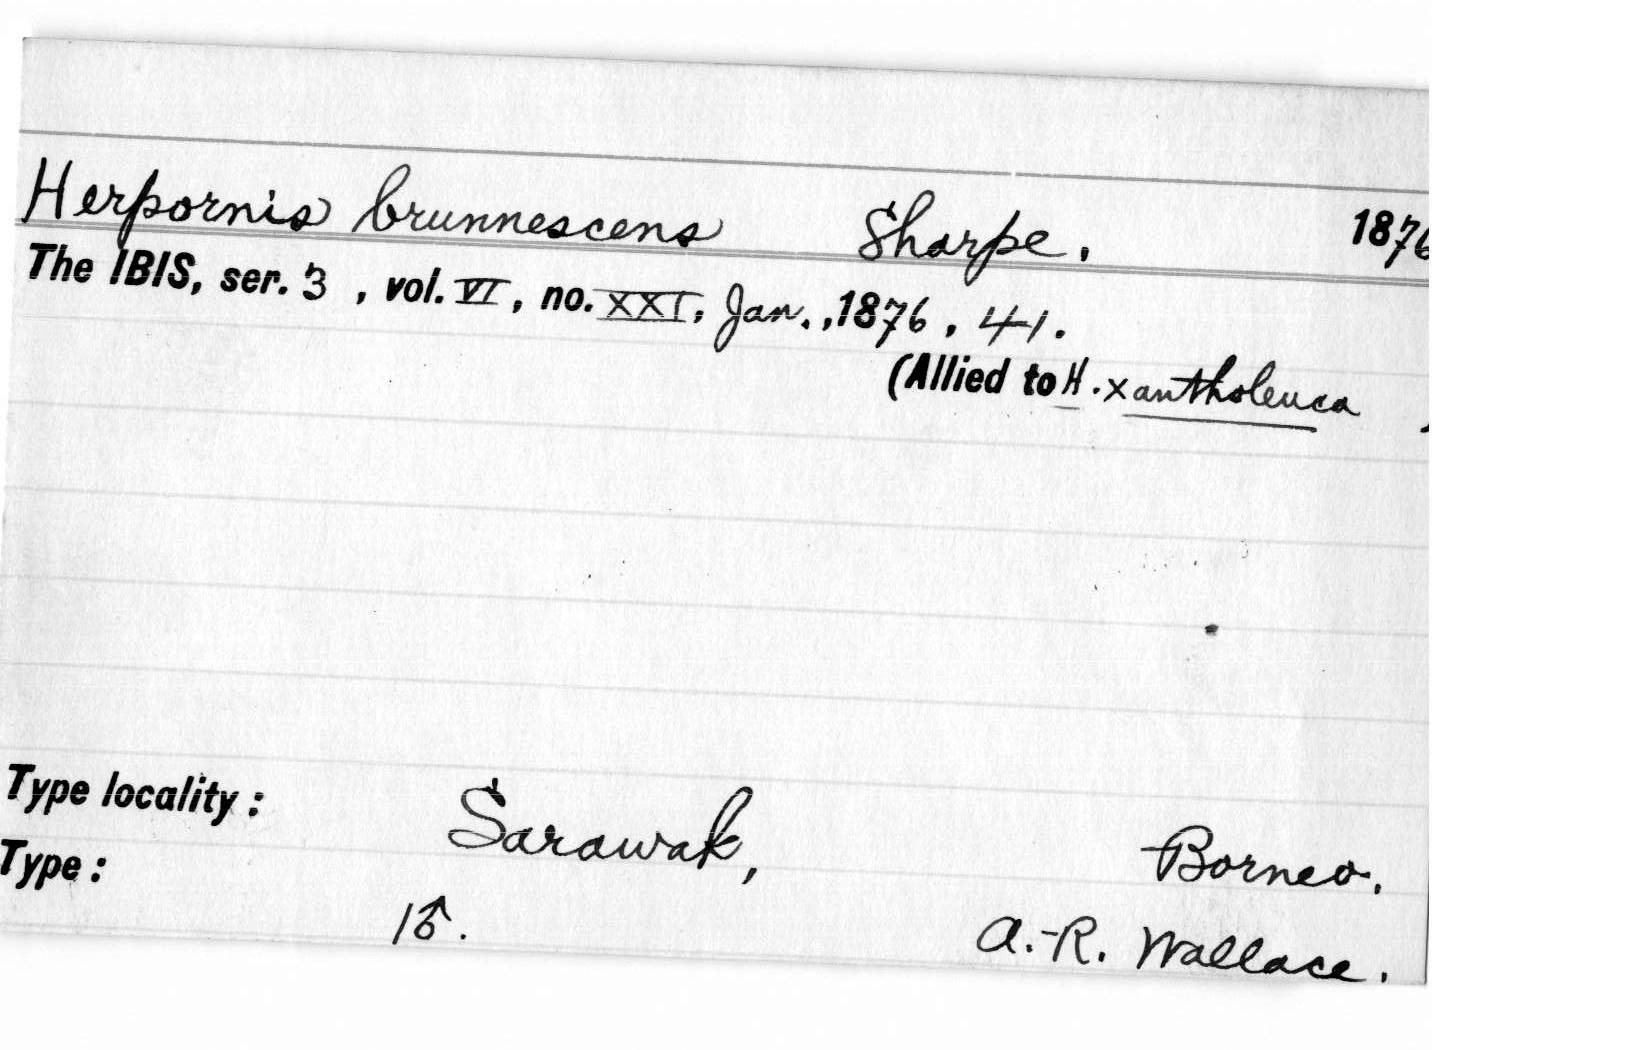 Herpornis brunnescens Sharpe. 1876
The IBIS, ser. 3 , vol. VI, no. XXI, Jan., 1876, 41.
(Allied to H. xantholeuca )
Type locality: Sarawak, Borneo.
Type: 1♂. A.-R. Wallace.